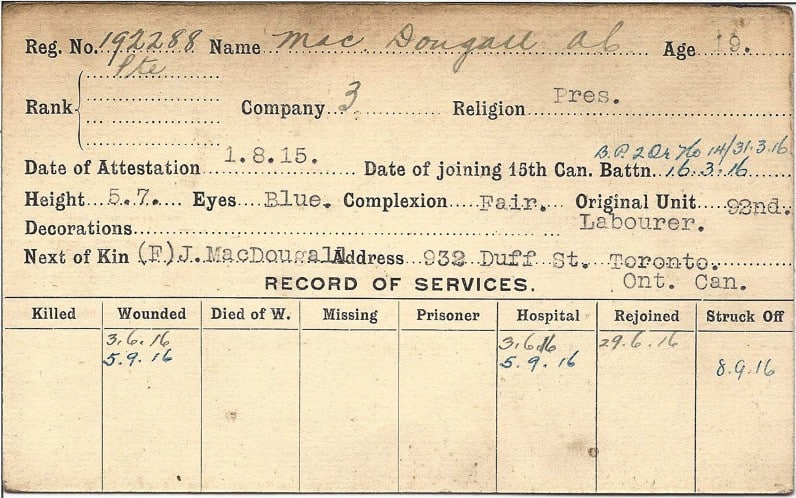 Reg. No. 192288 Name Mac Dougall A C Age 19.
Pte
Rank Company 3 Religion Pres.
B.P. 2 Or No 14/31.3.16
Date of Attestation 1.8.15. Date of joining 15th Can. Battn. 16.3.16
Height 5.7. Eyes Blue. Complexion Fair. Original Unit 92nd.
Decorations Labourer.
Next of Kin (F) J. MacDougall Address 932 Duff St. Toronto.
Ont. Can.
RECORD OF SERVICES.
Killed Wounded Died of W. Missing Prisoner Hospital Rejoined Struck Off
3.6.16 3.6.16 29.6.16
5.9.16 5.9.16 8.9.16